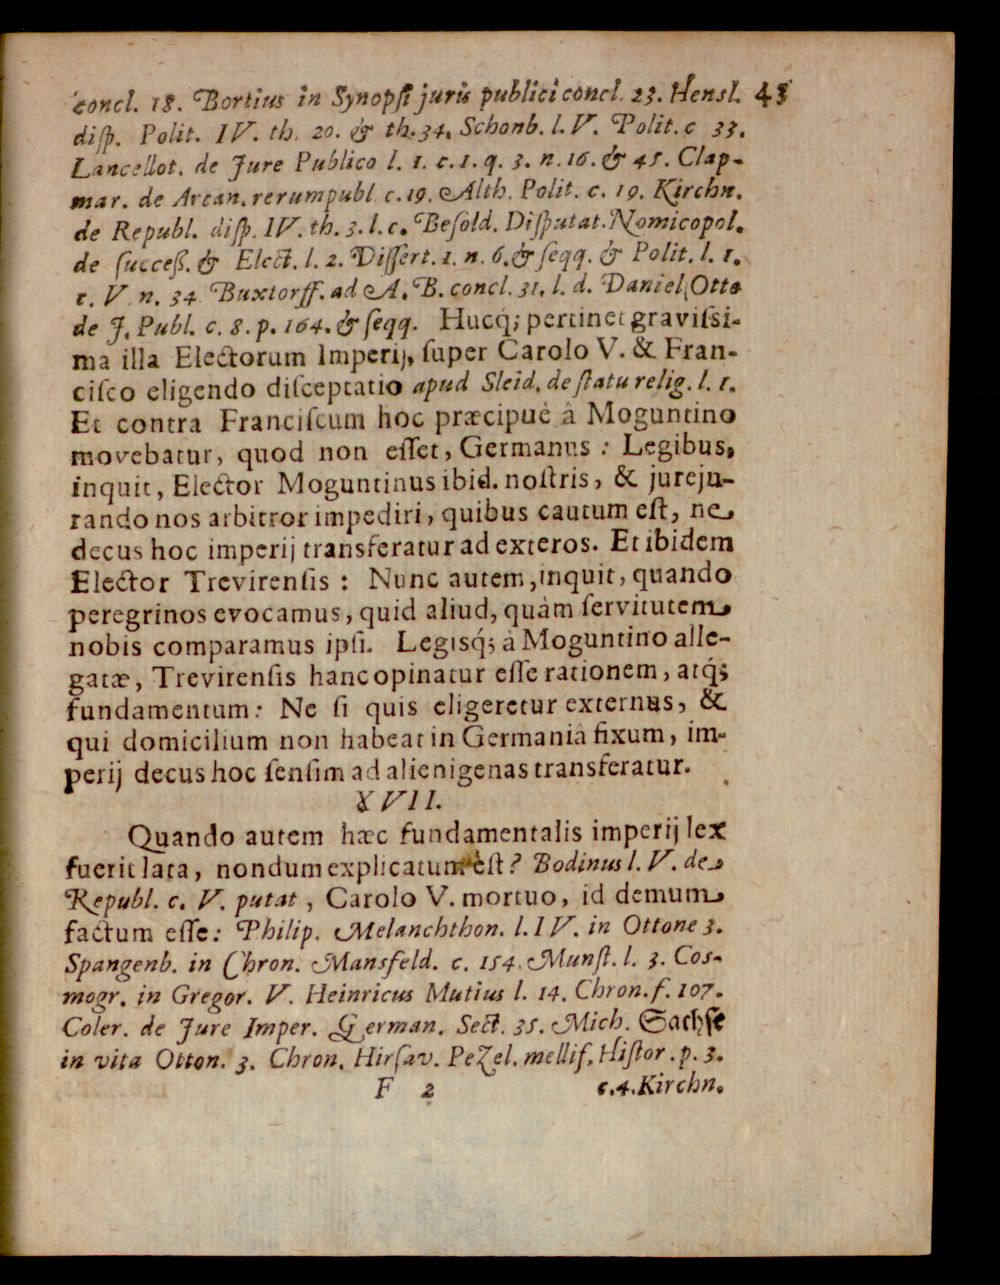 concl. 18. Bortius in Synopſi juris publici concl. 23. Hensl. 43
diſp. Polit. IV. th. 20. & th. 34. Schonb. l. V. Polit. c 33.
Lancellot. de Jure Publico l. 1. c. 1. q. 3. n. 16. & 45. Clap-
mar. de Arcan. rerumpubl. c. 19. Alth. Polit. c. 19. Kirchn.
de Republ. diſp. IV. th. 3. l. c. Beſold. Diſputat. Nomicopol.
de ſucceß. & Elect. l. 2. Diſſert. 1. n. 6. & ſeqq. & Polit. l. 1.
c. V. n. 34. Buxtorff. ad A. B. concl. 31. l. d. Daniel Otto
de J. Publ. c. 8. p. 164. & ſeqq. Hucq́; pertinet graviſsi-
ma illa Electorum Imperij, ſuper Carolo V. & Fran-
ciſco eligendo diſceptatio apud Sleid. de ſtatu relig. l. 1.
Et contra Franciſcum hoc præcipuè â Moguntino
movebatur, quod non eſſet, Germanus : Legibus,
inquit, Elector Moguntinus ibid. noſtris, & jureju-
rando nos arbitror impediri, quibus cautum eſt, ne
decus hoc imperij transferatur ad exteros. Et ibidem
Elector Trevirenſis : Nunc autem, inquit, quando
peregrinos evocamus, quid aliud, quàm ſervitutem
nobis comparamus ipſi. Legisq́; à Moguntino alle-
gatæ, Trevirenſis hanc opinatur eſſe rationem, atq́;
fundamentum: Ne ſi quis eligeretur externus, &
qui domicilium non habeat in Germaniâ fixum, im-
perij decus hoc ſenſim ad alienigenas transferatur.
XVII.
Quando autem hæc fundamentalis imperij lex
fuerit lata, nondum explicatum eſt? Bodinus l. V. de
Republ. c. V. putat, Carolo V. mortuo, id demum
factum eſſe: Philip. Melanchthon. l. IV. in Ottone 3.
Spangenb. in Chron. Mansfeld. c. 154. Munſt. l. 3. Cos-
mogr. in Gregor. V. Heinricus Mutius l. 14. Chron. f. 107.
Coler. de Jure Imper. German. Sect. 35. Mich. Sachſe
in vita Otton. 3. Chron. Hirſav. PeZel. mellif. Hiſtor. p. 3.
F 2 c. 4. Kirchn.